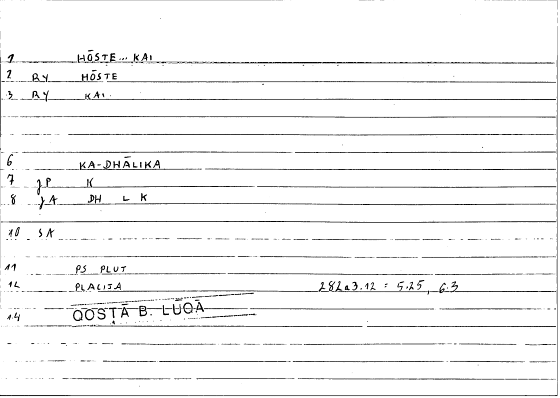 1 HŌSTE... KAI
2 RY HŌSTE
3 RY KAI
6 KA-DHĀLIKA
7 JP K
8 JA DH L K
10 SA
11 PS PLUT
12 PLACITA 282a3.12 = 5.25, 6.3
14 QOSṬĀ B. LŪQĀ